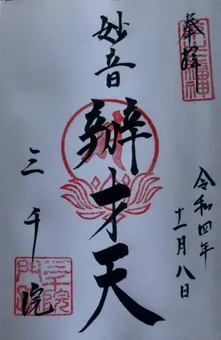 奉拝
令和四年
十一月八日
妙音
辨才天
三千院